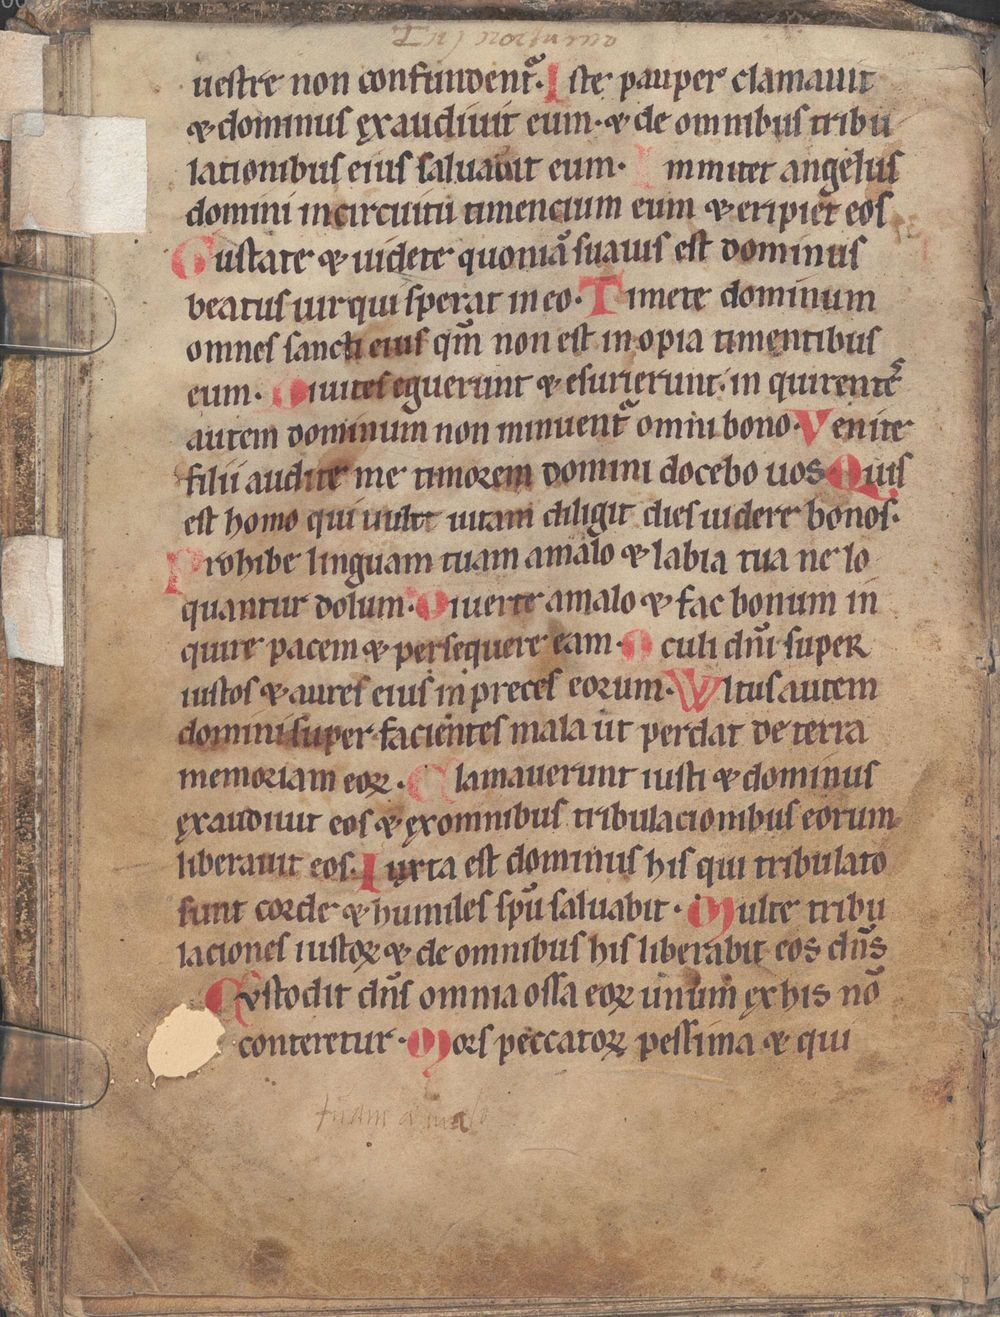 In j nocturno
uestre non confundent᷑. Iste pauper clamauit
& dominus exaudiuit eum. & de omnibus tribu
lationibus eius saluauit eum. Immitet angelus
domini incircuitu timencium eum & eripiet eos
Gustate & uidete quoniā suauis est dominus
beatus uir qui sperat in eo. Timete dominum
omnes sancti eius qm̄ non est inopia timentibus
eum. Diuites eguerunt & esurierunt. in quirent᷑
autem dominum non minuent᷑ omni bono. Venite
filii audite me timorem domini docebo uos Quis
est homo qui uult uitam diligit dies uidere bonos.
Prohibe linguam tuam amalo & labia tua ne lo
quantur dolum. Diuerte amalo & fac bonum in
quire pacem & persequere eam. Oculi dn̄i super
iustos & aures eius in preces eorum. Wltus autem
domini super facientes mala ut perdat de terra
memoriam eoꝝ. Clamauerunt iusti & dominus
exaudiuit eos & exomnibus tribulacionibus eorum
liberauit eos. Iuxta est dominus his qui tribulato
sunt corde & humiles spū saluabit. Multe tribu
laciones iustoꝝ & de omnibus his liberabit eos dn̄s
Custodit dn̄s omnia ossa eoꝝ unum ex his nō
conteretur. Mors peccatoꝝ pessima & qui
tuam a malo